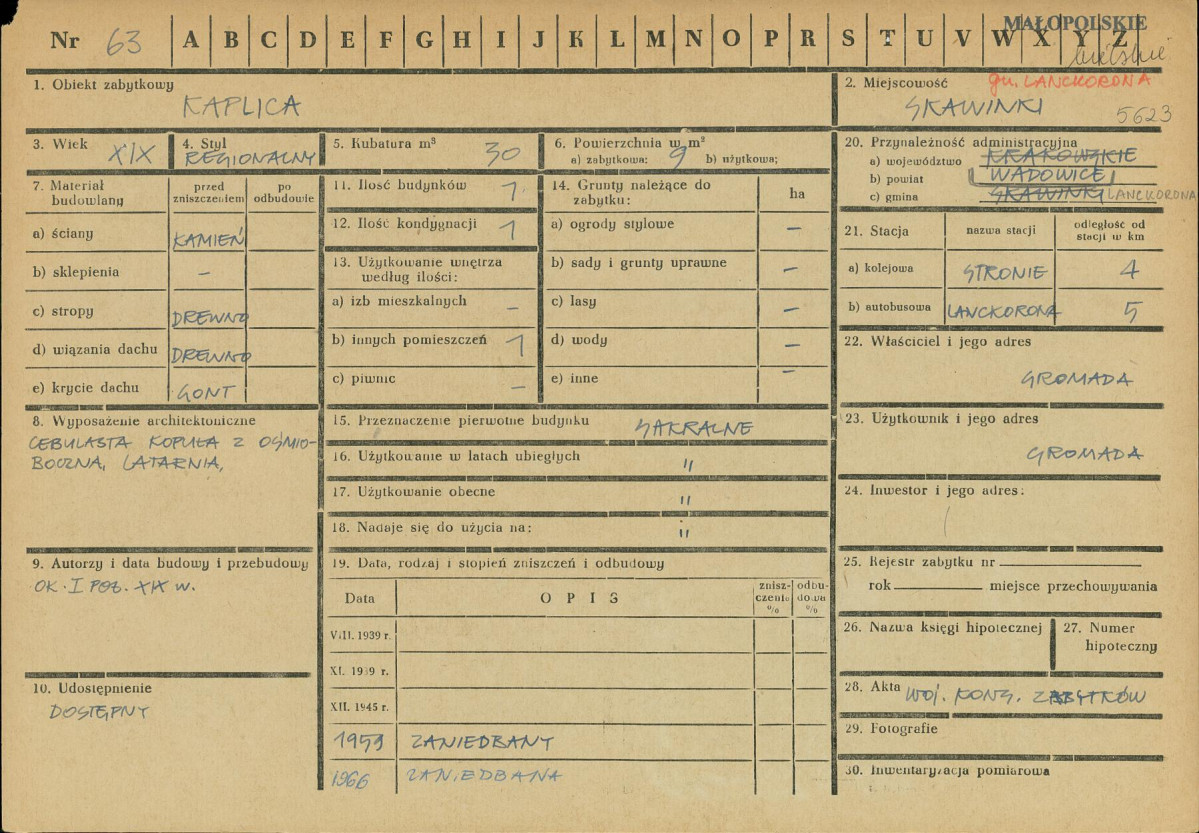 MAŁOPOLSKIE
Nr 63 A B C D E F G H I J K L M N O P R S T U V W X Y Z
bielskie
1. Obiekt zabytkowy
KAPLICA
2. Miejscowość gm. LANCKORONA
SKAWINKI 5623
3. Wiek XIX
4. Styl
REGIONALNY
5. Kubatura m³ 30
6. Powierzchnia w m²
a) zabytkowa: 9 b) użytkowa;
20. Przynależność administracyjna
a) województwo KRAKOWSKIE
b) powiat WADOWICE
c) gmina SKAWINKI LANCKORONA
7. Materiał budowlany
przed zniszczeniem
po odbudowie
a) ściany KAMIEŃ
b) sklepienia –
c) stropy DREWNO
d) wiązania dachu DREWNO
e) krycie dachu GONT
11. Ilość budynków 1
12. Ilość kondygnacji 1
13. Użytkowanie wnętrza
według ilości:
a) izb mieszkalnych –
b) innych pomieszczeń 1
c) piwnic –
14. Grunty należące do
zabytku: ha
a) ogrody stylowe –
b) sady i grunty uprawne –
c) lasy –
d) wody –
e) inne –
21. Stacja
nazwa stacji
odległość od
stacji w km
a) kolejowa STRONIE 4
b) autobusowa LANCKORONA 5
22. Właściciel i jego adres
GROMADA
8. Wyposażenie architektoniczne
CEBULASTA KOPUŁA Z OŚMIO-
BOCZNĄ, LATARNIĄ,
15. Przeznaczenie pierwotne budynku SAKRALNE
16. Użytkowanie w latach ubiegłych "
17. Użytkowanie obecne "
18. Nadaje się do użycia na: "
23. Użytkownik i jego adres
GROMADA
24. Inwestor i jego adres:
9. Autorzy i data budowy i przebudowy
OK. I POŁ. XIX W.
10. Udostępnienie
DOSTĘPNY
19. Data, rodzaj i stopień zniszczeń i odbudowy
Data
OPIS
zniszczenie %
odbudowa %
VIII. 1939 r.
XI. 1939 r.
XII. 1945 r.
1959 ZANIEDBANY
1966 ZANIEDBANA
25. Rejestr zabytku nr
rok miejsce przechowywania
26. Nazwa księgi hipotecznej
27. Numer
hipoteczny
28. Akta WOJ. KONS. ZABYTKÓW
29. Fotografie
30. Inwentaryzacja pomiarowa